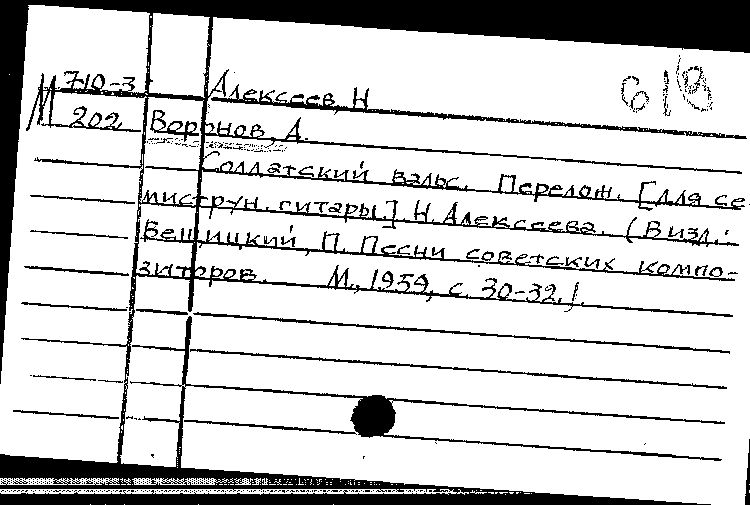 М 710-3 Алексеев, Н
202 Воронов, А.
Солдатский вальс. Перелож. [для се-
миструн. гитары.] Н. Алексеева. (В изд.:
Вещицкий, П. Песни советских компо-
зиторов. М., 1959, с. 30-32.).